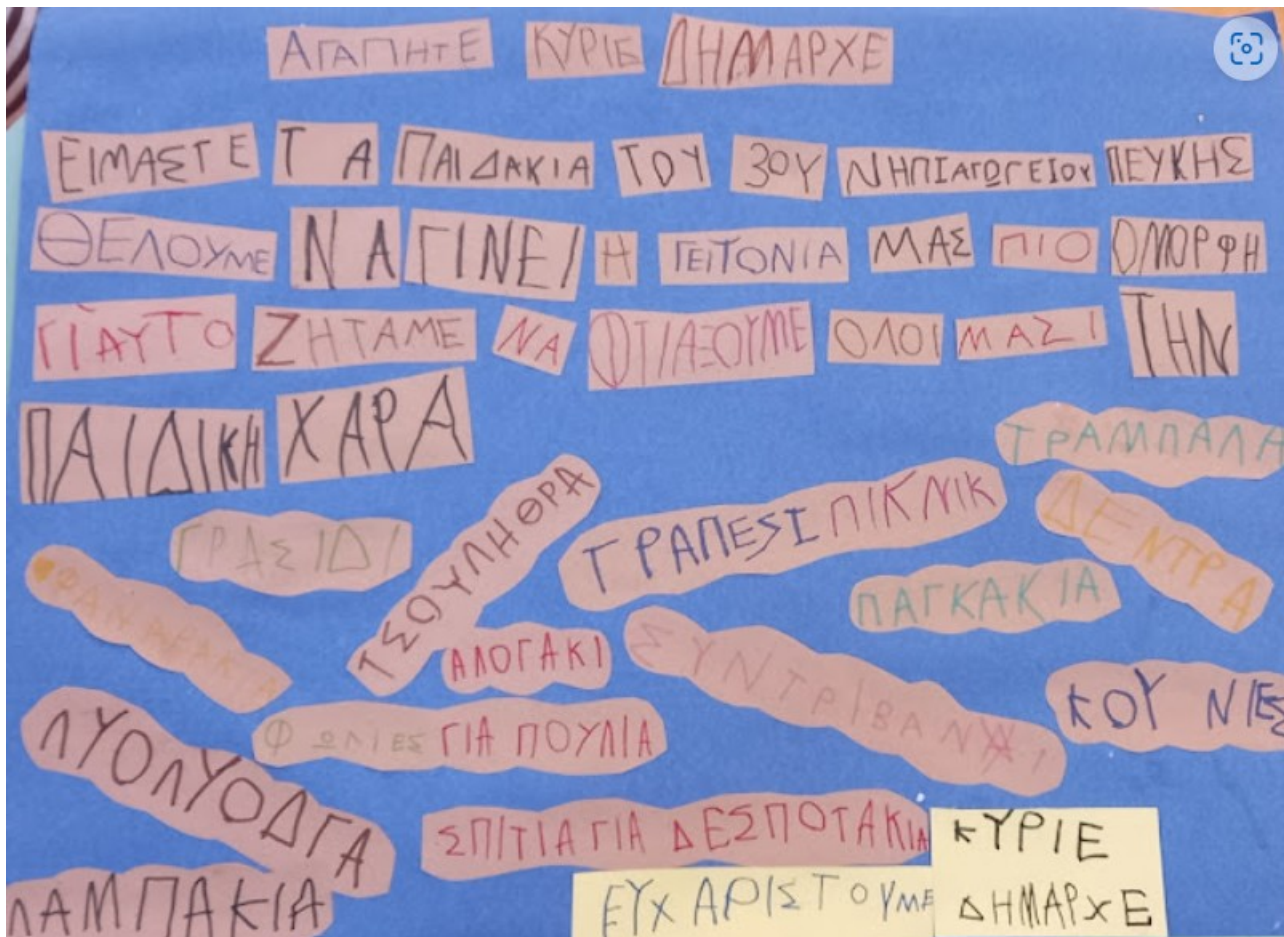 ΑΓΑΠΗΤΕ ΚΥΡΙΕ ΔΗΜΑΡΧΕ
ΕΙΜΑΣΤΕ ΤΑ ΠΑΙΔΑΚΙΑ ΤΟΥ 3ΟΥ ΝΗΠΙΑΓΩΓΕΙΟΥ ΠΕΥΚΗΣ
ΘΕΛΟΥΜΕ ΝΑ ΓΙΝΕΙ Η ΓΕΙΤΟΝΙΑ ΜΑΣ ΠΙΟ ΟΜΟΡΦΗ
ΓΙ'ΑΥΤΟ ΖΗΤΑΜΕ ΝΑ ΦΤΙΑΞΟΥΜΕ ΟΛΟΙ ΜΑΖΙ ΤΗΝ
ΠΑΙΔΙΚΗ ΧΑΡΑ
ΤΡΑΜΠΑΛΑ
ΓΡΑΣΙΔΙ
ΤΣΟΥΛΗΘΡΑ
ΤΡΑΠΕΣΙ ΠΙΚΝΙΚ
ΔΕΝΤΡΑ
ΠΑΓΚΑΚΙΑ
ΑΛΟΓΑΚΙ
ΣΥΝΤΡΙΒΑΝΙ
ΚΟΥΝΙΕΣ
ΦΩΛΙΕΣ ΓΙΑ ΠΟΥΛΙΑ
ΛΥΟΛΥΟΔΓΑ
ΣΠΙΤΙΑ ΓΙΑ ΔΕΣΠΟΤΑΚΙΑ
ΛΑΜΠΑΚΙΑ
ΕΥΧΑΡΙΣΤΟΥΜΕ
ΚΥΡΙΕ
ΔΗΜΑΡΧΕ